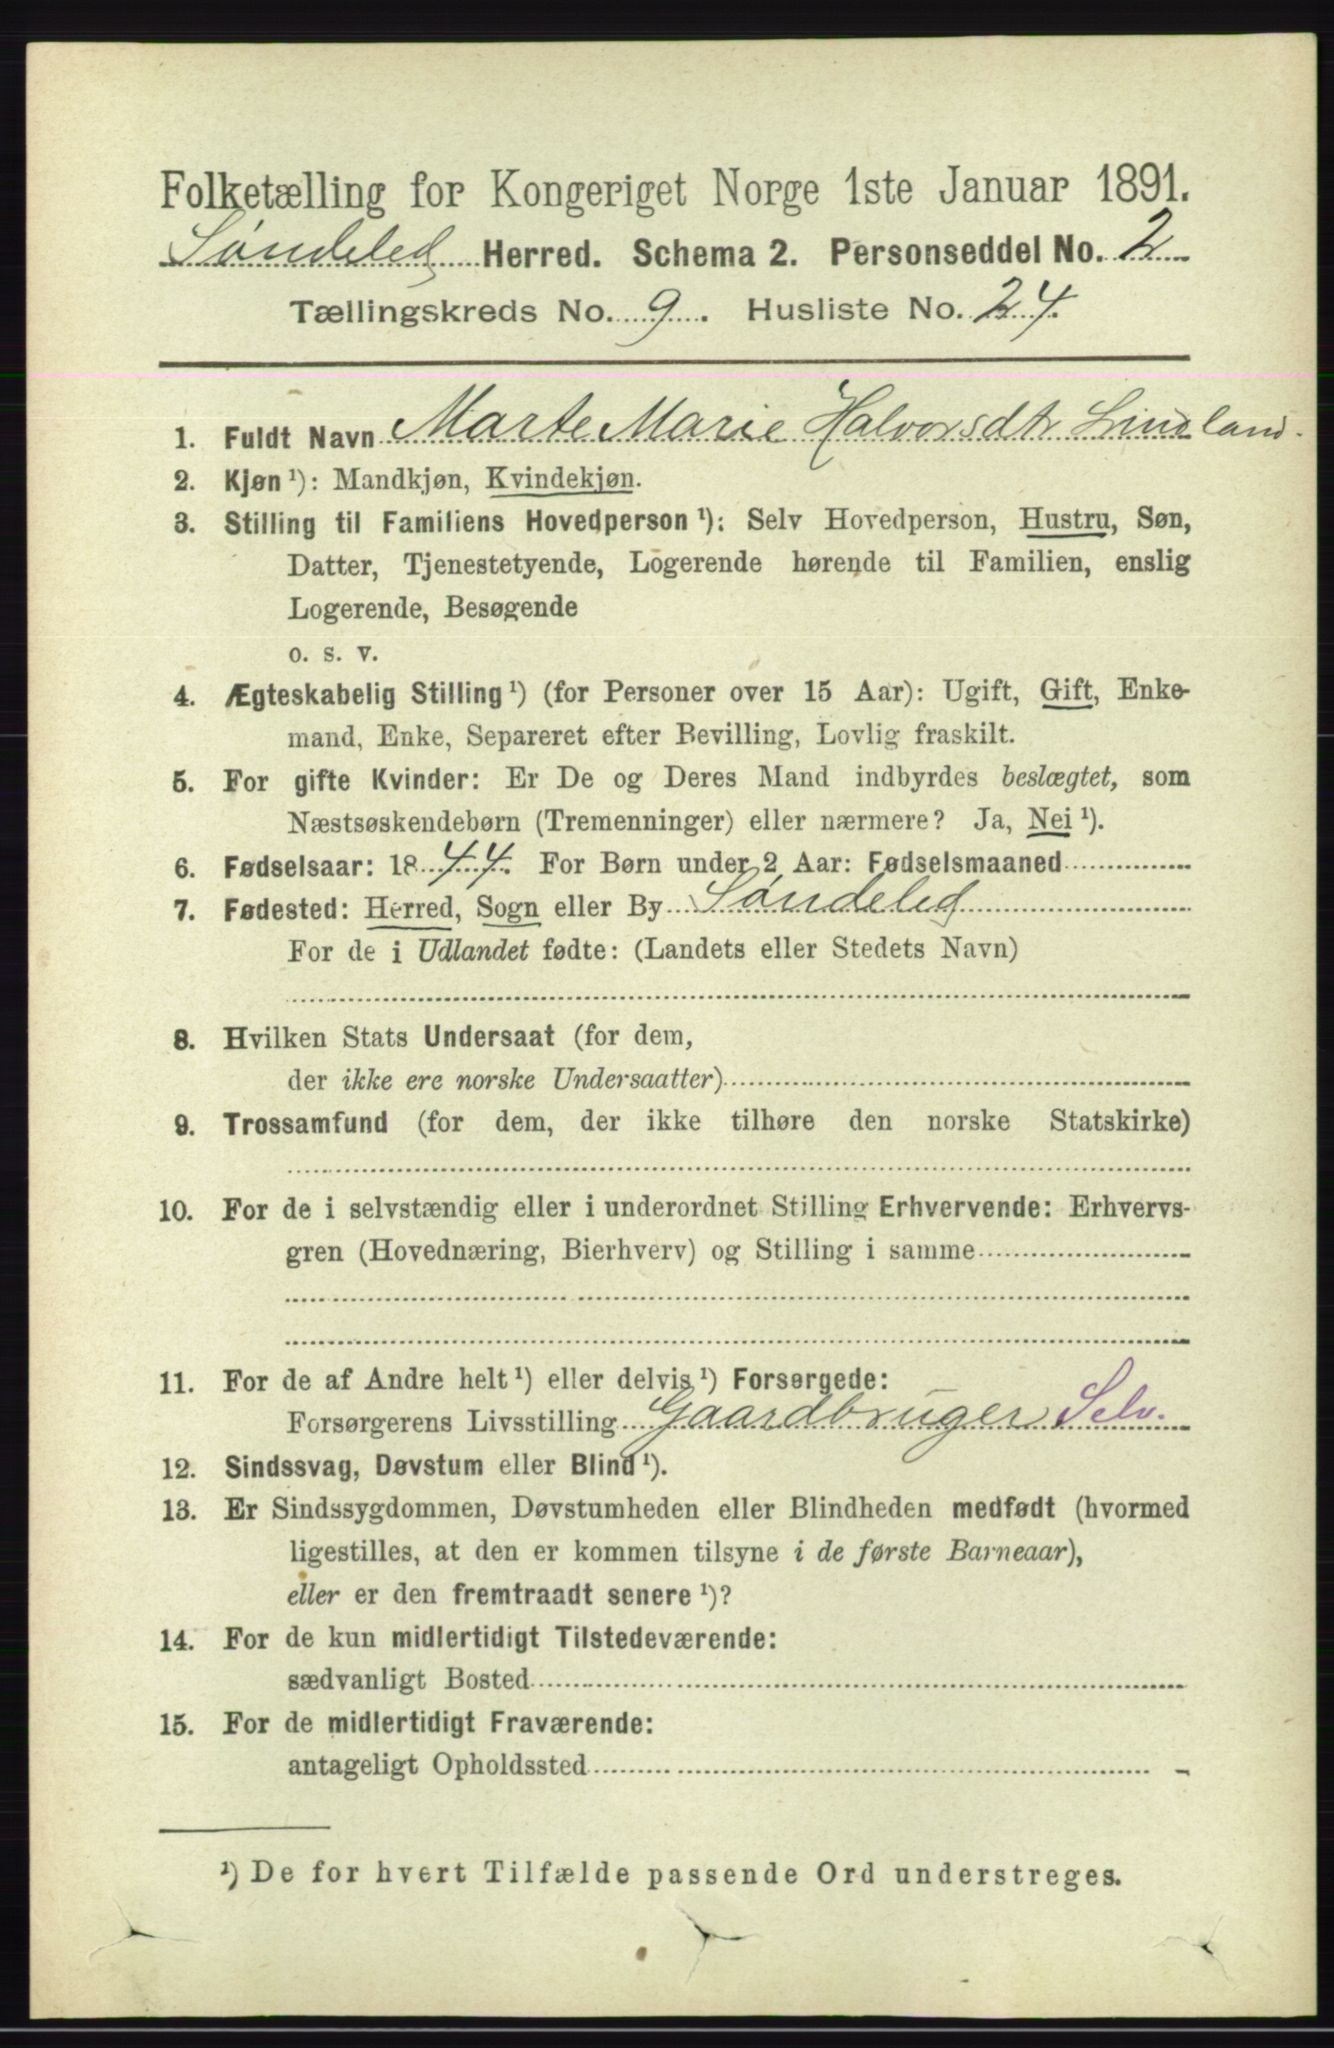 Folketælling for Kongeriget Norge 1ste Januar 1891.
Søndeled Herred. Schema 2. Personseddel No. 2
Tællingskreds No. 9. Husliste No. 24.
1. Fuldt Navn Marte Marie Halvorsdtr Lindland.
2. Kjøn ¹): Mandkjøn, Kvindekjøn.
3. Stilling til Familiens Hovedperson ¹): Selv Hovedperson, Hustru, Søn,
Datter, Tjenestetyende, Logerende hørende til Familien, enslig
Logerende, Besøgende
o. s. v.
4. Ægteskabelig Stilling ¹) (for Personer over 15 Aar): Ugift, Gift, Enke-
mand, Enke, Separeret efter Bevilling, Lovlig fraskilt.
5. For gifte Kvinder: Er De og Deres Mand indbyrdes beslægtet, som
Næstsøskendebørn (Tremenninger) eller nærmere? Ja, Nei ¹).
6. Fødselsaar: 1844. For Børn under 2 Aar: Fødselsmaaned
7. Fødested: Herred, Sogn eller By Søndeled
For de i Udlandet fødte: (Landets eller Stedets Navn)
8. Hvilken Stats Undersaat (for dem,
der ikke ere norske Undersaatter)
9. Trossamfund (for dem, der ikke tilhøre den norske Statskirke)
10. For de i selvstændig eller i underordnet Stilling Erhvervende: Erhvervs-
gren (Hovednæring, Bierhverv) og Stilling i samme
11. For de af Andre helt ¹) eller delvis ¹) Forsørgede:
Forsørgerens Livsstilling Gaardbruger Selv.
12. Sindssvag, Døvstum eller Blind ¹).
13. Er Sindssygdommen, Døvstumheden eller Blindheden medfødt (hvormed
ligestilles, at den er kommen tilsyne i de første Barneaar),
eller er den fremtraadt senere ¹)?
14. For de kun midlertidigt Tilstedeværende:
sædvanligt Bosted
15. For de midlertidigt Fraværende:
antageligt Opholdssted
¹) De for hvert Tilfælde passende Ord understreges.